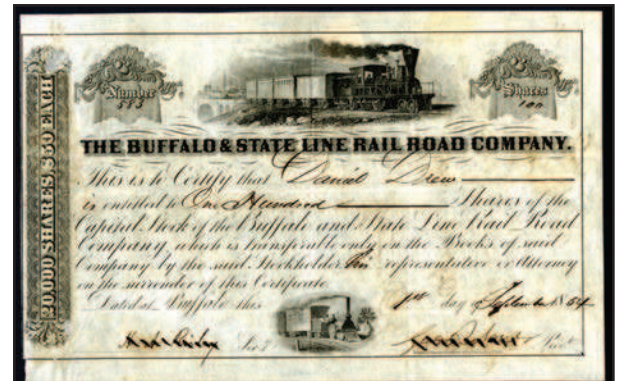 Number
Shares
100
THE BUFFALO & STATE LINE RAIL ROAD COMPANY.
This is to Certify that Daniel Drew
is entitled to One Hundred Shares of the
Capital Stock of the Buffalo and State Line Rail Road
Company, which is transferable only on the Books of said
Company by the said Stockholder his representative or Attorney
on the surrender of this Certificate
Dated at Buffalo this 1st day of September 1854
Sec.y Prest
20,000 SHARES, $50 EACH